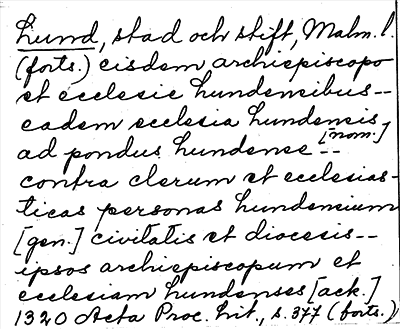 Lund, stad och stift, Malm. l.
(forts.) eisdem archiepiscopo
et ecclesie lundensibus --
eadem ecclesia lundensis
[nom.]
ad pondus lundense --
contra clerum et ecclesias-
ticas personas lundensium
[gen.] civitatis et diocesis --
ipsos archiepiscopum et
ecclesiam lundenses [ack.]
1320 Acta Proc. Lit., s. 377 (forts.)